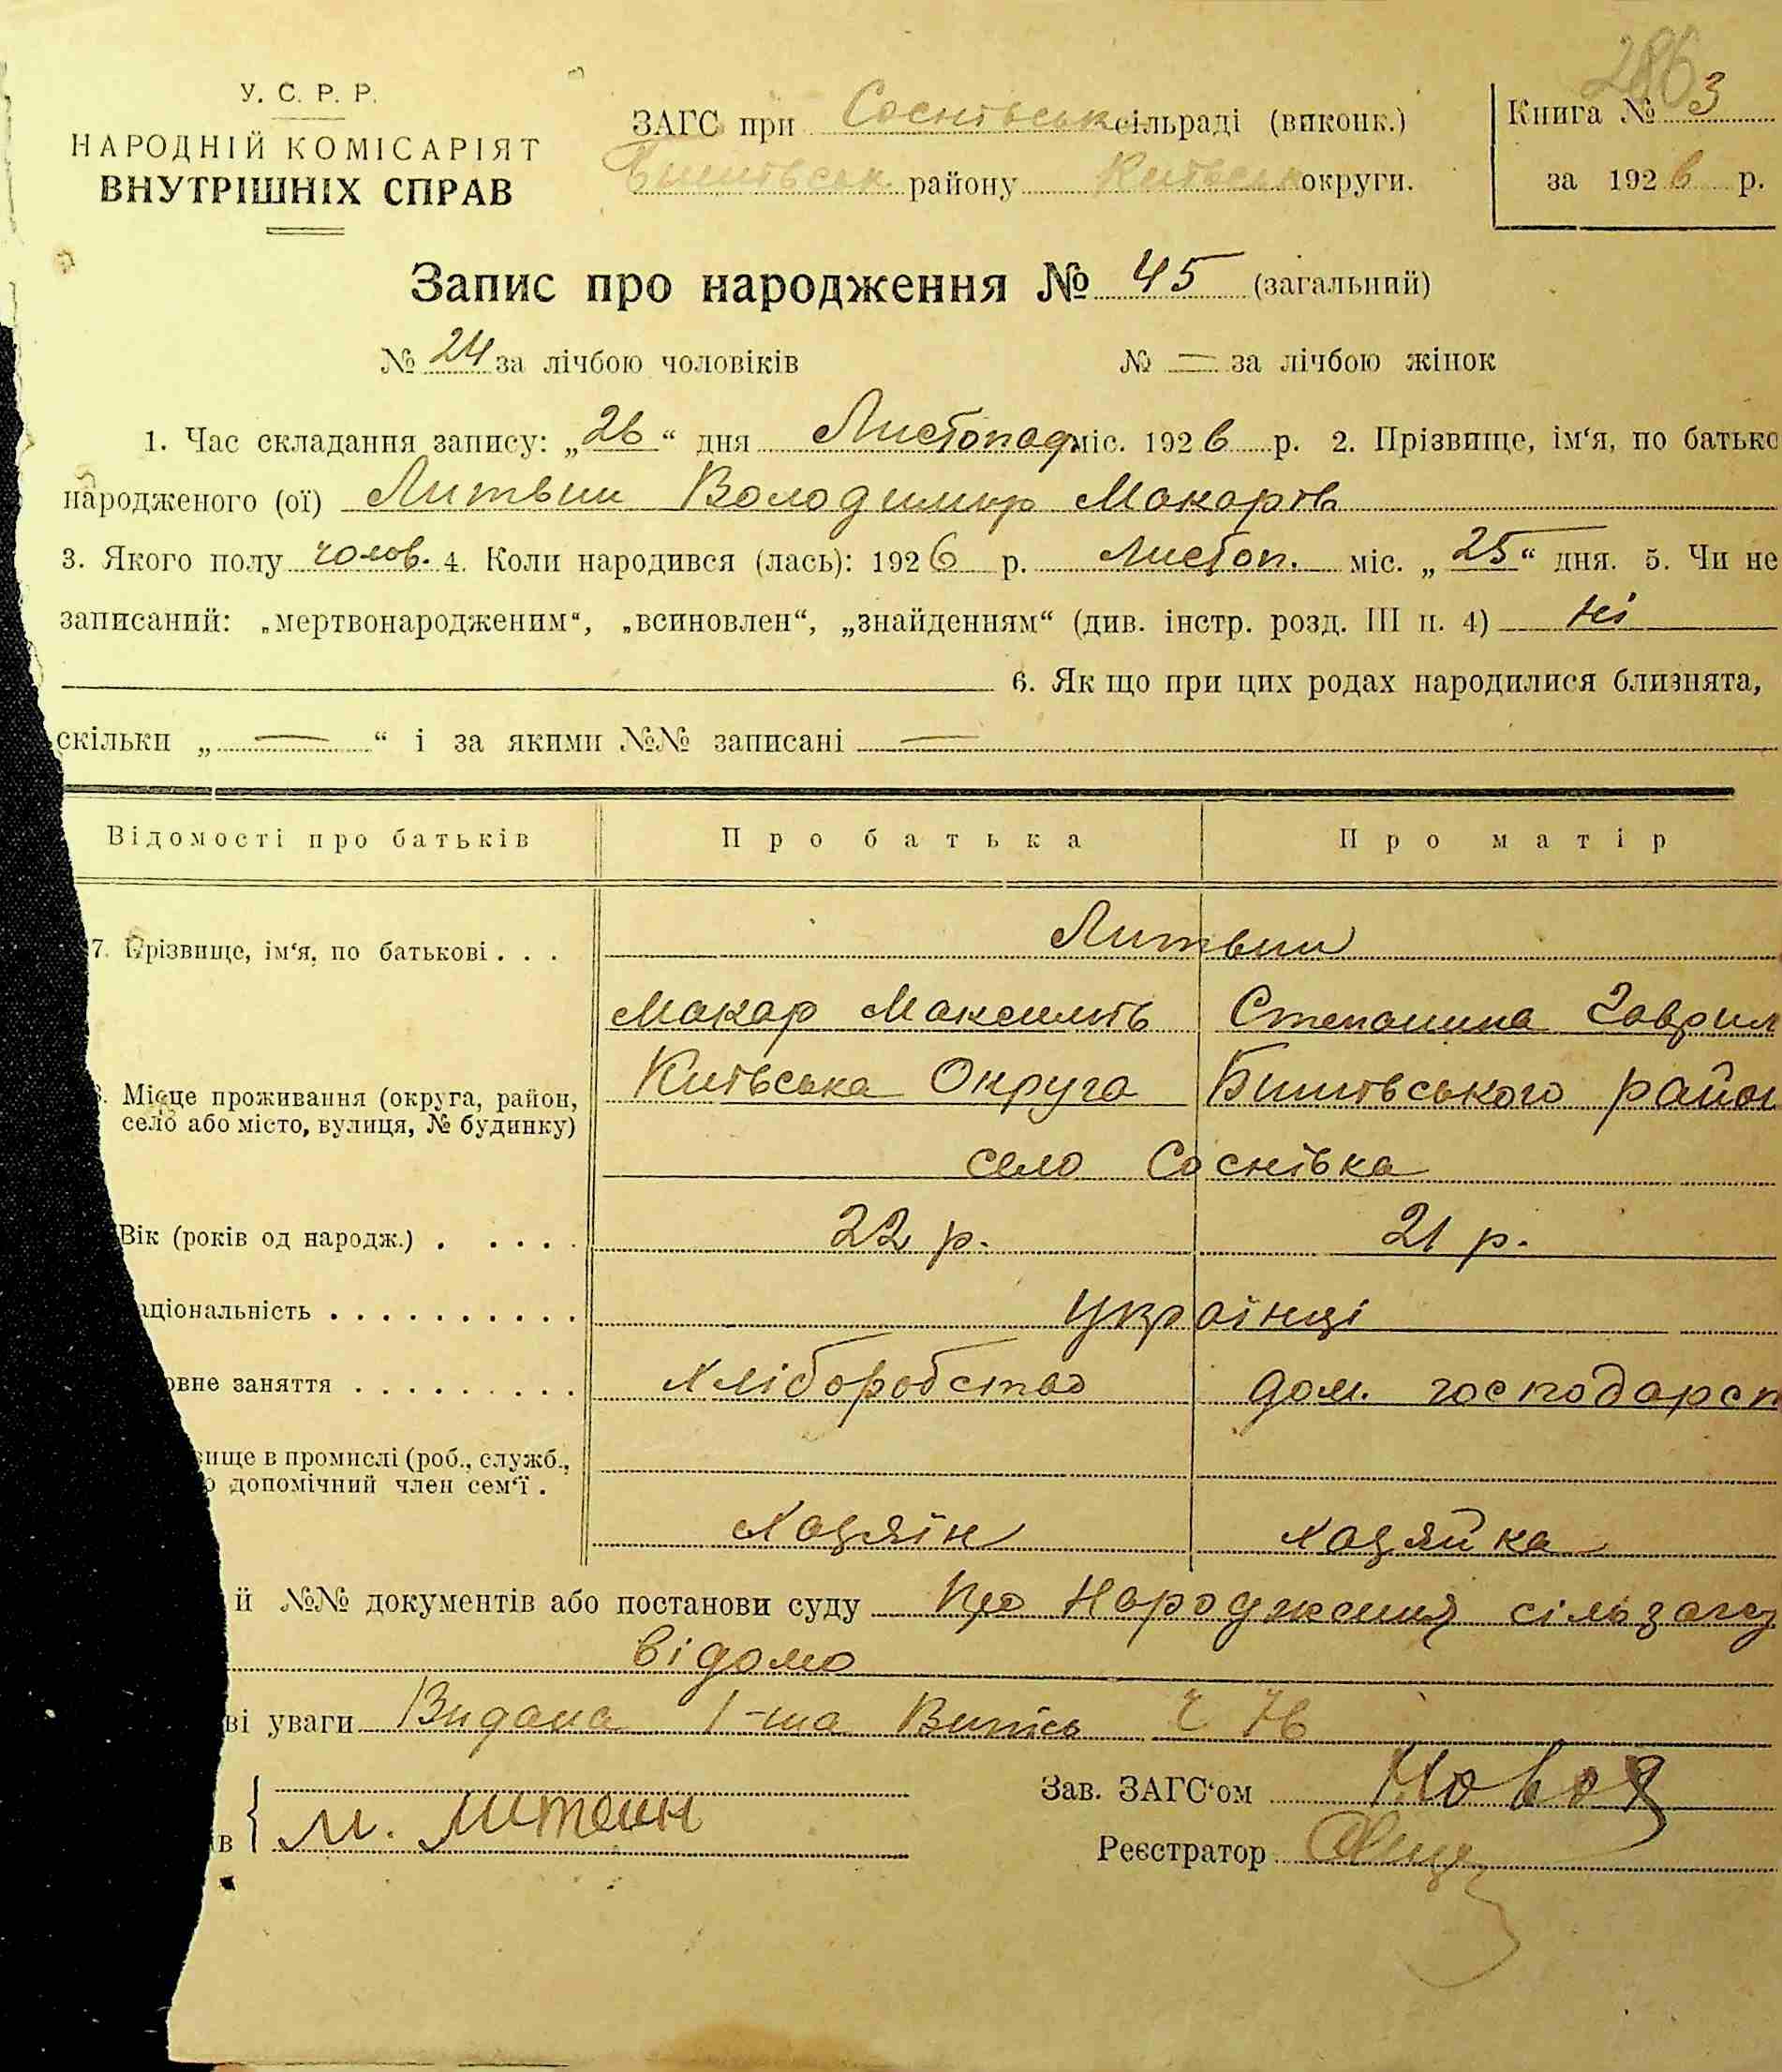 286
У. С. Р. Р.
НАРОДНІЙ КОМІСАРІЯТ
ВНУТРІШНІХ СПРАВ
ЗАГС при Соснівськ сільраді (виконк.)
Бишівськ району Київськ округи.
Книга № 3
за 1926 р.
Запис про народження № 45 (загальний)
№ 24 за лічбою чоловіків № — за лічбою жінок
1. Час складання запису: „26“ дня Листопад міс. 1926 р. 2. Прізвище, ім‘я, по батько
народженого (ої) Литвин Володимир Макарів
3. Якого полу чолов. 4. Коли народився (лась): 1926 р. Листоп. міс. „25“ дня. 5. Чи не
записаний: „мертвонародженим“, „всиновлен“, „знайденням“ (див. інстр. розд. III п. 4) ні
6. Як що при цих родах народилися близнята,
скільки „—“ і за якими №№ записані —
Відомості про батьків Про батька Про матір
7. Прізвище, ім‘я, по батькові . . . Литвин
Макар Максимів Степанина Гаврил
Місце проживання (округа, район, Київська Округа Бишівського район
село або місто, вулиця, № будинку)
село Соснівка
Вік (років од народж.) . . . . . 22 р. 21 р.
аціональність . . . . . . . . . . Українці
овне заняття . . . . . . . . . Хліборобство дом. господарст
вище в промислі (роб., служб.,
р допомічний член сем‘ї .
Хазяїн хазяйка
й №№ документів або постанови суду Про Народження сільзагсу
відомо
ві уваги Видана 1-ша Випись ч 76
Зав. ЗАГС‘ом
в М. Литвин
Реєстратор